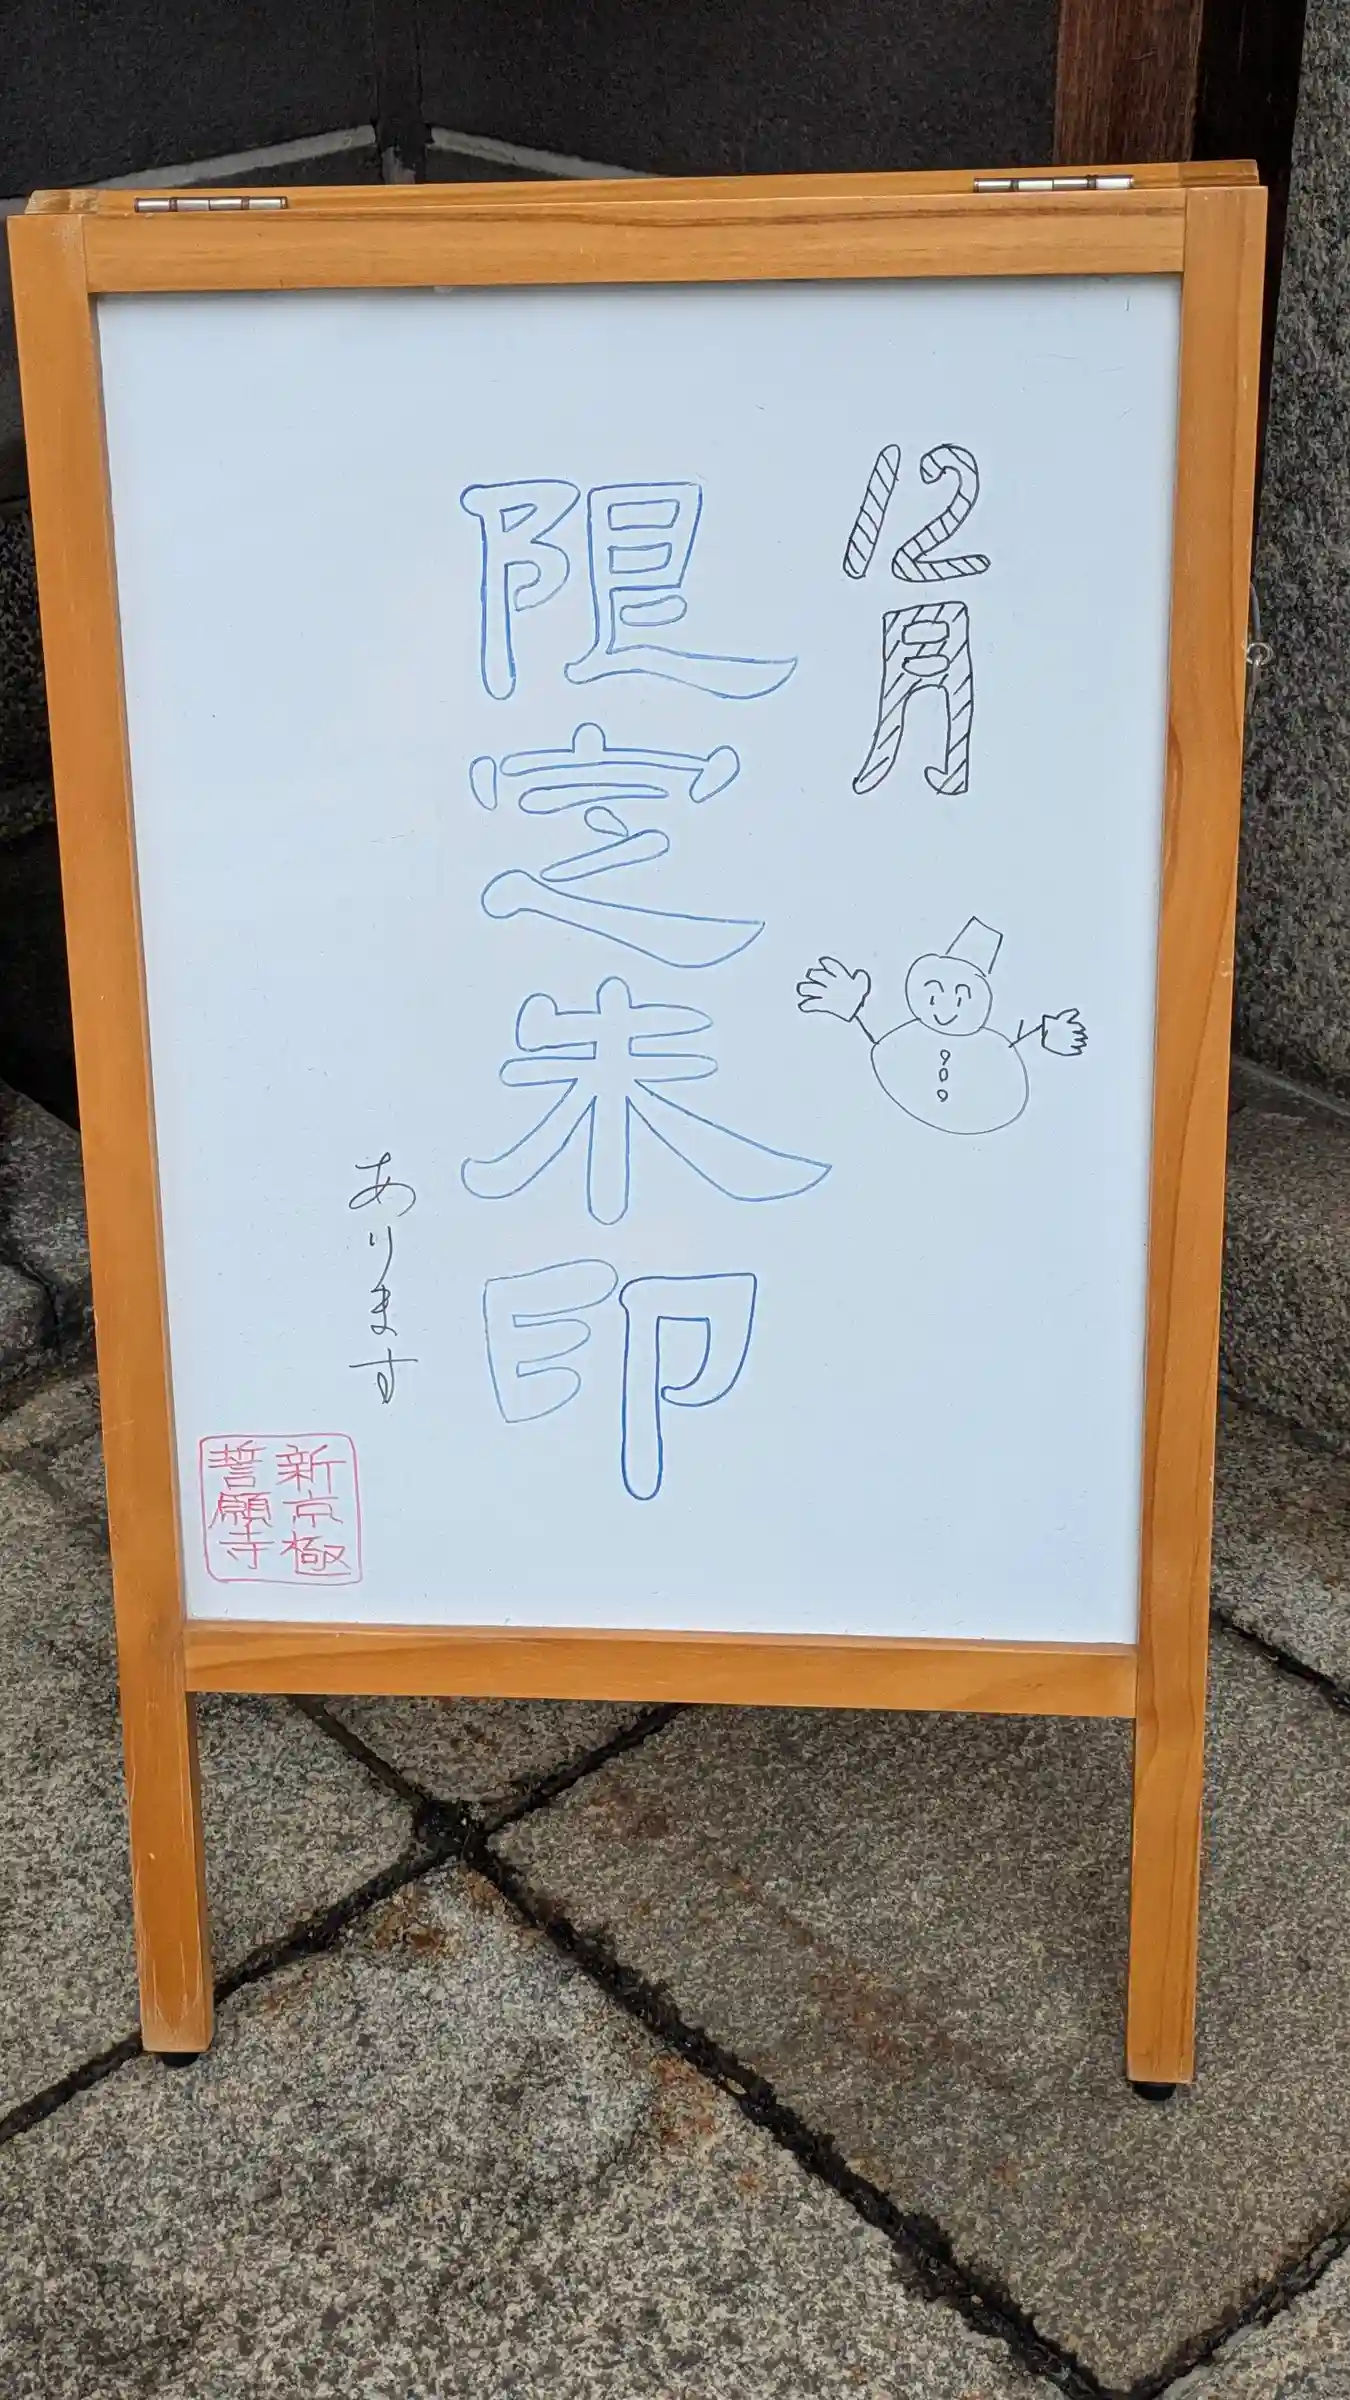 12月
限定朱印
あります
新京極
誓願寺